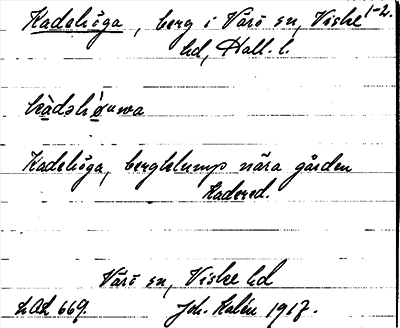 Kadehöga, berg i Värö sn, Viske 1-2.
hd, Hall. l.
Kadehöga, bergklump nära gården
Kadered.
Värö sn, Viske hd
LAL 669. Joh. Kalén 1917.